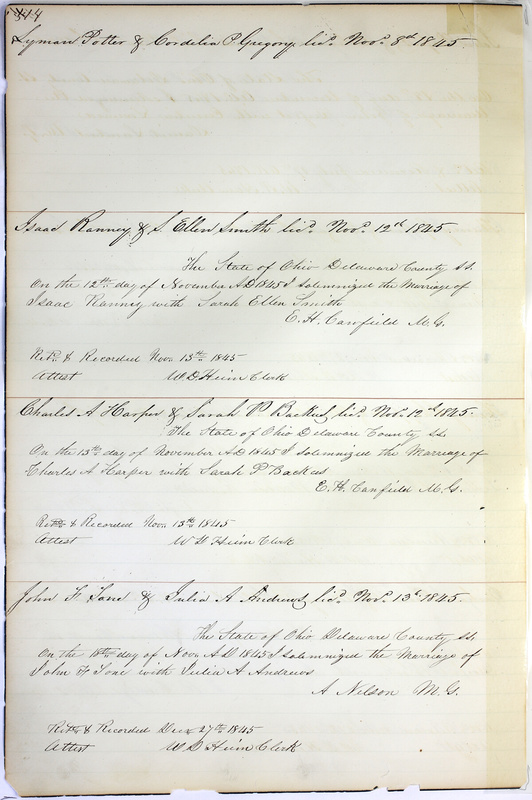 Lyman Potter & Cordelia P. Gregory lic.d Nov. 8th 1845.
Isaac Ranney & S. Ellen Smith lic.d Nov. 12th 1845.
The State of Ohio Delaware County ss.
On the 12th day of November A.D. 1845 I solemnized the Marriage of
Isaac Ranney with Sarah Ellen Smith
E. H. Canfield M. G.
Ret.d & Recorded Nov. 13th 1845
Attest W D Heim Clerk
Charles A Harper & Sarah P Backus, lic.d Nov. 12th 1845.
The State of Ohio Delaware County, ss.
On the 13th day of November A.D. 1845 I solemnized the Marriage of
Charles A Harper with Sarah P Backus
E. H. Canfield M. G.
Ret.d & Recorded Nov. 13th 1845
Attest W D Heim Clerk
John F Tone & Julia A Andrews, lic.d Nov. 13th 1845.
The State of Ohio Delaware County ss.
On the 18th day of Nov. A.D. 1845 I solemnized the Marriage of
John F Tone with Julia A Andrews
A Nelson M. G.
Ret.d & Recorded Dec. 27th 1845
Attest W D Heim Clerk